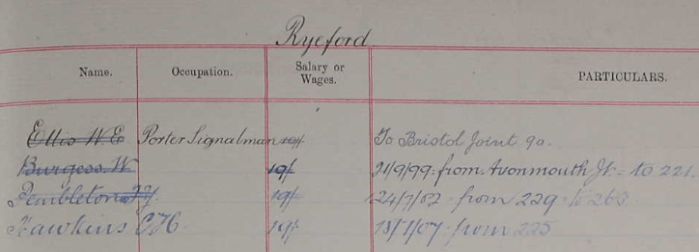 Ryeford
Name. Occupation. Salary or Wages. PARTICULARS.
Ellis W E Porter Signalman 19/- To Bristol Joint 90.
Burgess. W 19/- 21/9/99. from Avonmouth Jt. to 221.
Pembleton 19/- 24/7/02 from 229 to 262
Hawkins C J H. 19/- 15/1/07. from 225